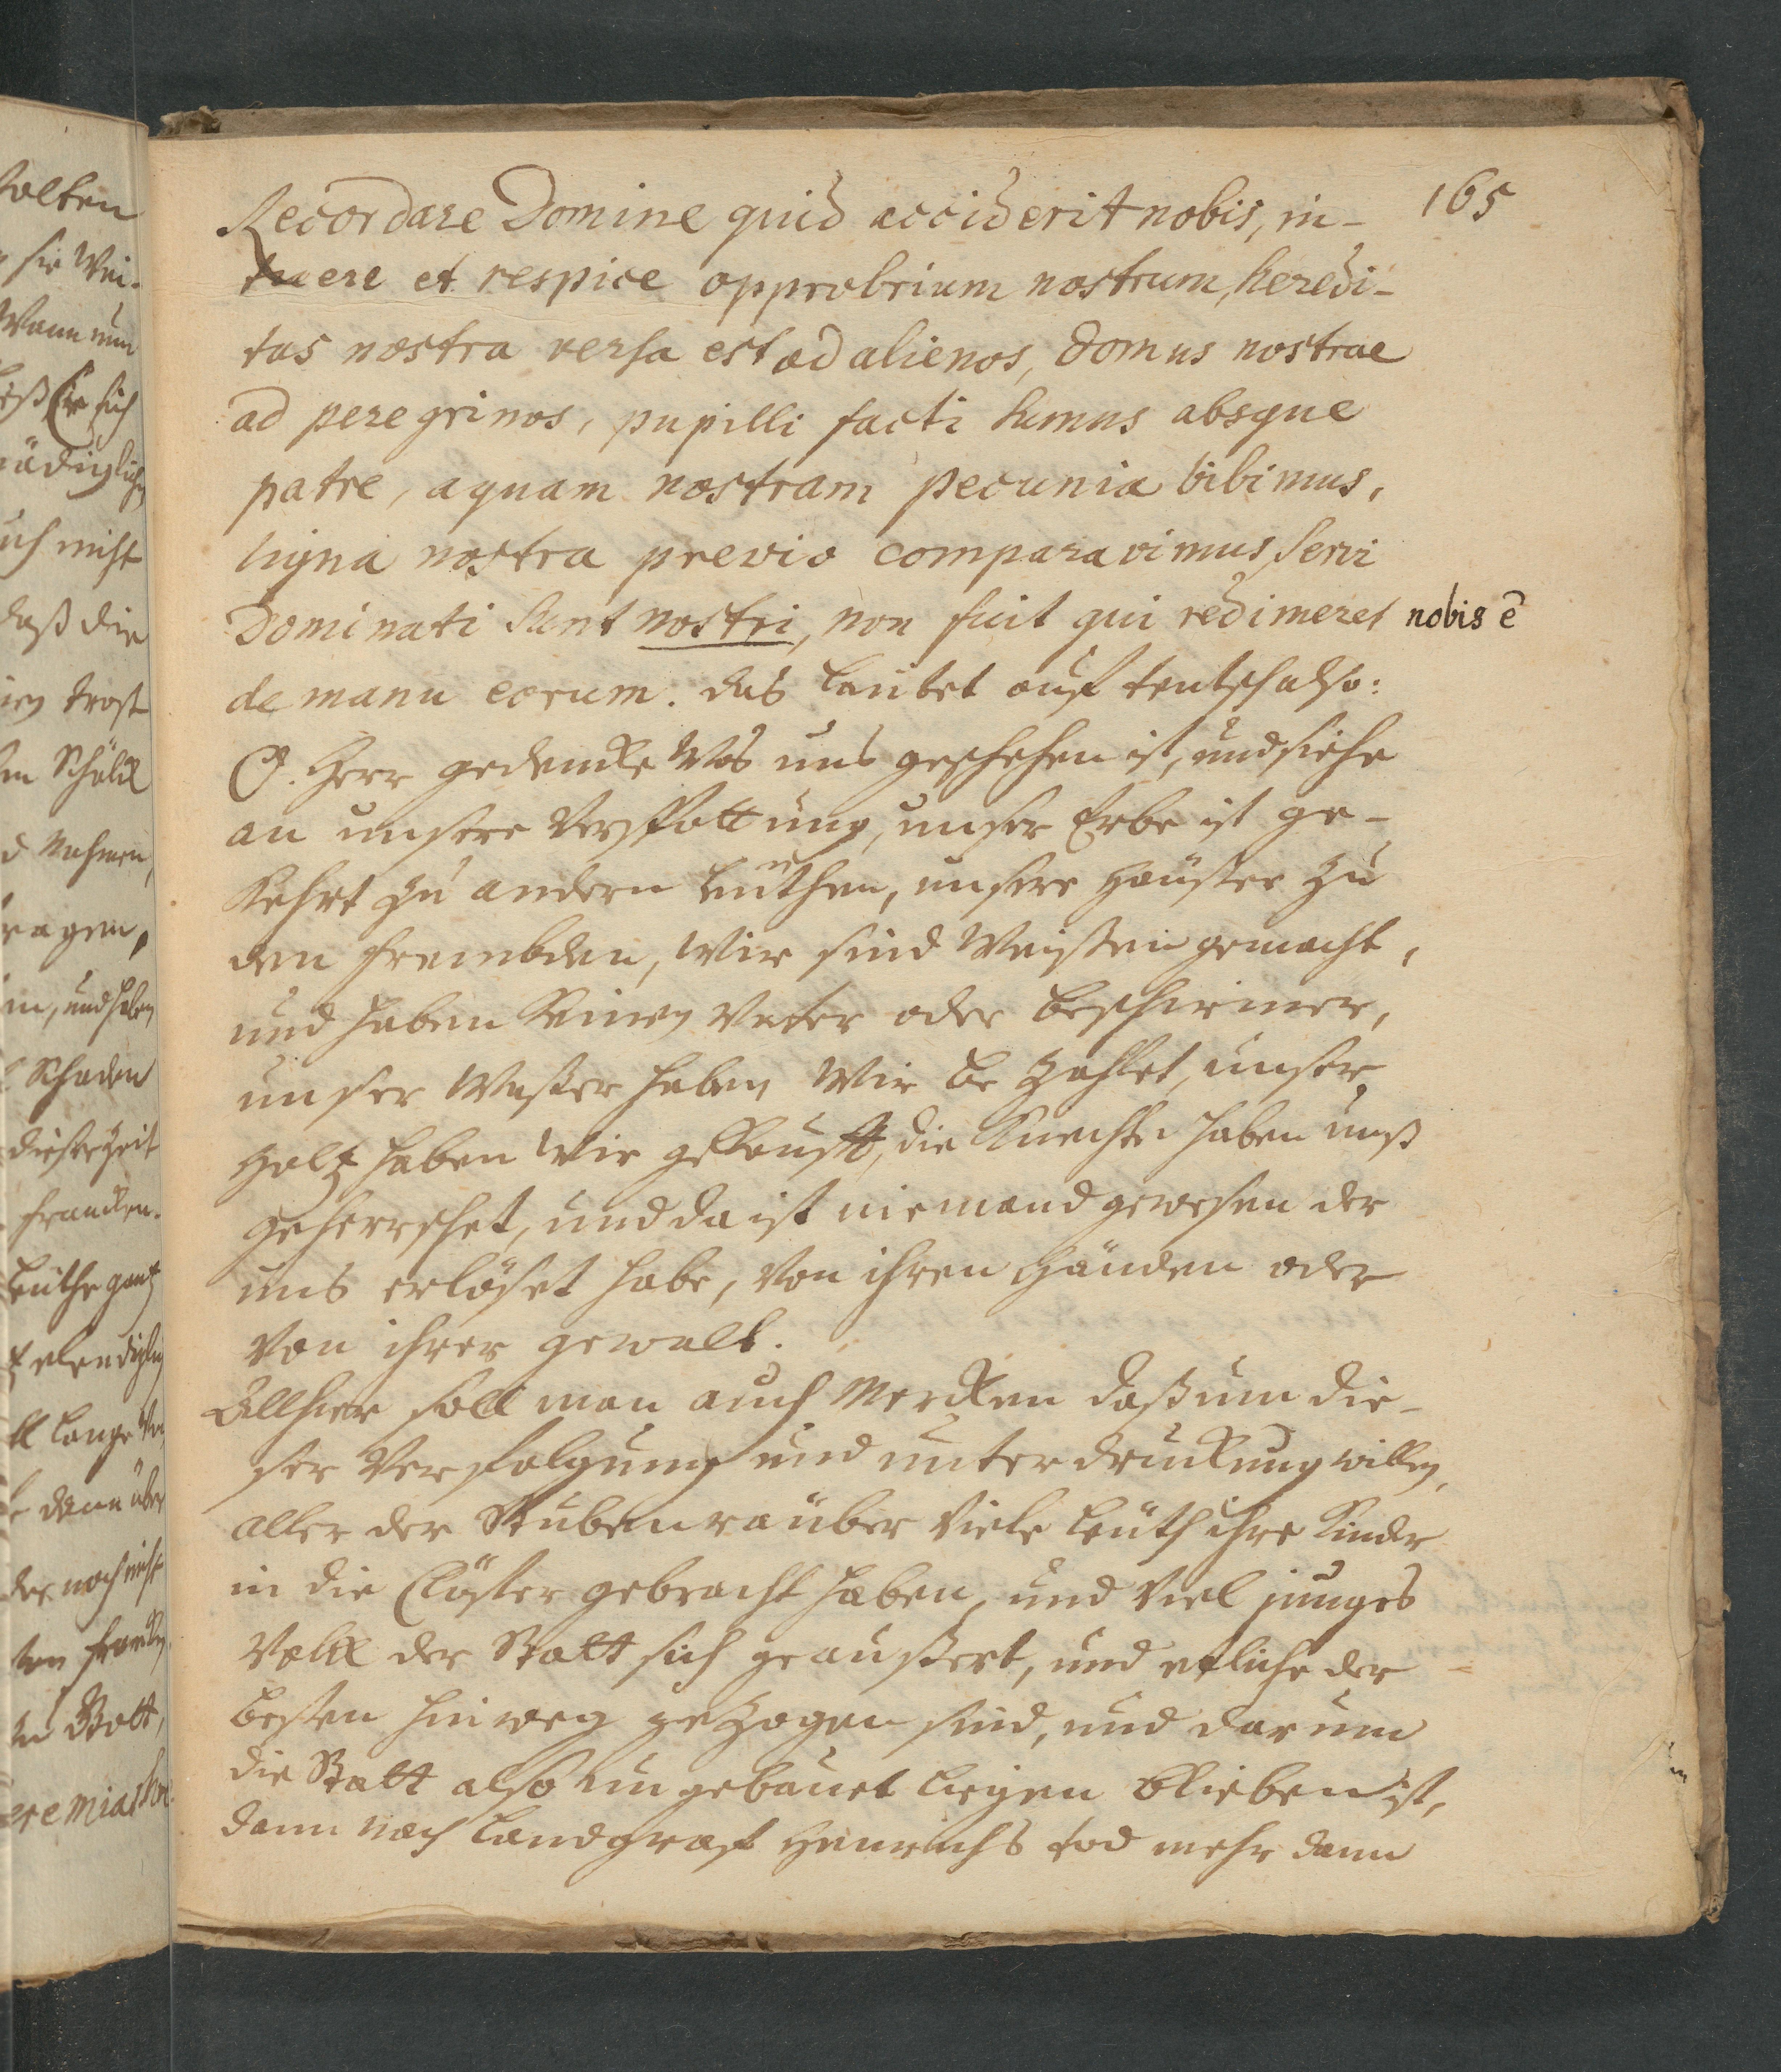 165
Recordare Domine quid acciderit nobis, in-
tuere et respice opprobrium nostrum, heredi-
tas nostra versa est ad alienos, domus nostrae
ad peregrinos, pupilli facti sumus absque
patre, aquam nostram pecunia bibimus,
ligna nostra previo comparavimus, Servi
Dominati sunt nostri, non fuit qui redimeret
nobis ē
de manu eorum. das lautet auf teutsch also:
O. Herr gedencke Was uns geschehen ist, und siehe
an unsere Verspottung, unser Erbe ist ge-
Kehrt zu andern Leüthen, unsere Häußer zu
den frembden, Wir sind Weißen gemacht,
und haben Keinen Vater oder beschirmer,
unser Waßer haben Wir be Zahlet, unser
Holtz haben Wir gekaufft, die Knechte haben unß
geherrschet, und da ist niemand gewesen der
uns erlöset habe, Von ihren Händen oder
Von ihrer gewalt.
Allhier soll man auch Mercken daß um die-
ser Verfolgung und unterdruckung willen,
aller der Stubenräuber Viele Leüth ihre Kinder
in die Clöster gebracht haben, und Viel junges
Volck der Statt sich geaußert, und etliche der
besten hinweg gezogen sind, und darum
die Statt also ungebauet liegen blieben ist,
dann nach Landgraf Henrichs tod mehr dann
solten
sie Wei-
Wann nun
Er sich
nädiglichen
uch nicht
daß die
trost
Schuld
Nahmen,
ragen,
und haben
Schaden
dieser Zeit
francken-
Leüthe gantz
elendiglich
lange
dann über
der noch nicht
Gott,